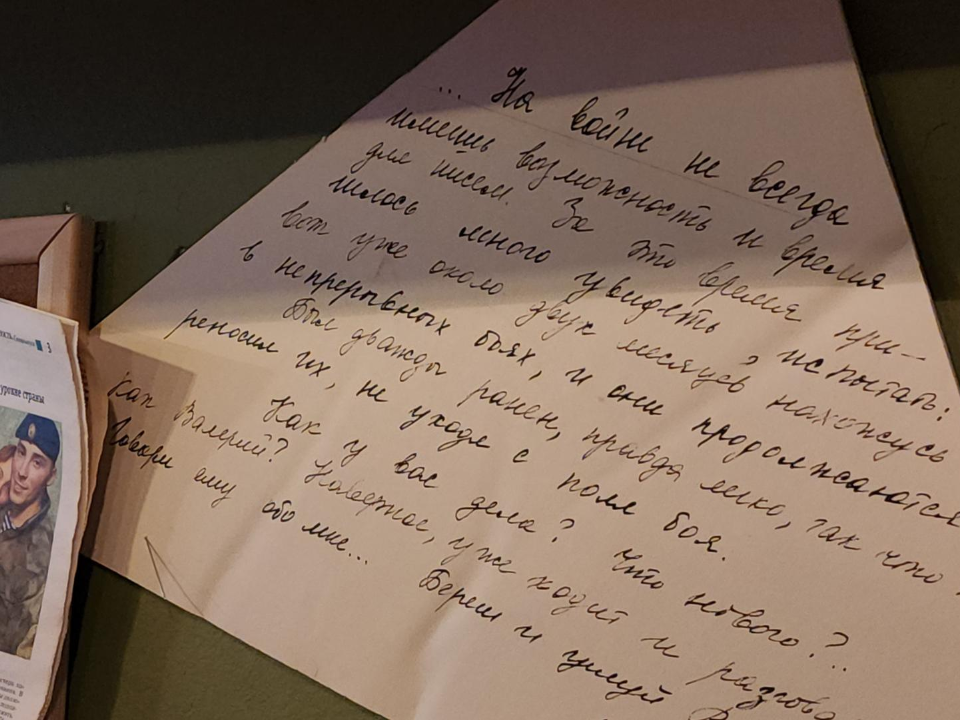 ... На войне не всегда
имеешь возможность и время
для писем. За это время при-
шлось много увидеть и испытать:
вот уже около двух месяцев нахожусь
в непрерывных боях, и они продолжаются
Был дважды ранен, правда легко, так что
реносил их, не уходя с поля боя.
Как у вас дела? Что нового?..
Как Валерий? Наверное, уже ходит и разгова
Говори ему обо мне... Береги и целуй
3
уровне страны